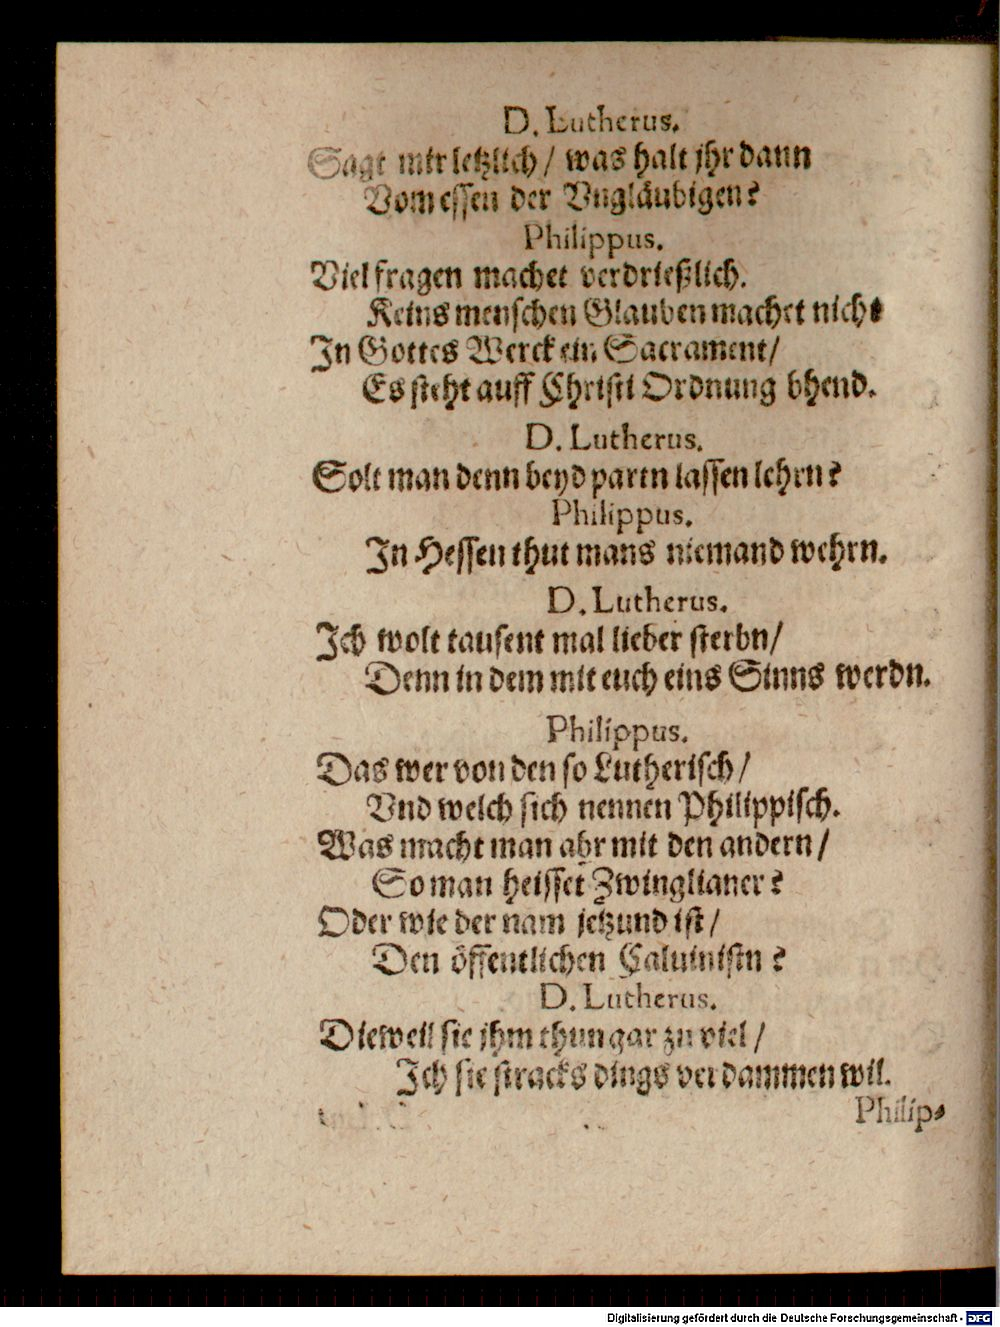 D. Lutherus.
Sagt mir letzlich / was halt jhr dann
Vom essen der Vngläubigen?
Philippus.
Viel fragen machet verdrießlich.
Keins menschen Glauben machet nicht
In Gottes Werck ein Sacrament /
Es steht auff Christi Ordnung bhend.
D. Lutherus.
Solt man denn beyd partn lassen lehrn?
Philippus.
In Hessen thut mans niemand wehrn.
D. Lutherus.
Ich wolt tausent mal lieber sterbn /
Denn in dem mit euch eins Sinns werdn.
Philippus.
Das wer von den so Lutherisch /
Vnd welch sich nennen Philippisch.
Was macht man abr mit den andern /
So man heisset Zwinglianer?
Oder wie der nam jetzund ist /
Den öffentlichen Caluinistn?
D. Lutherus.
Dieweil sie jhm thun gar zu viel /
Ich sie stracks dings verdammen wil.
Philip-
Digitalisierung gefördert durch die Deutsche Forschungsgemeinschaft - DFG